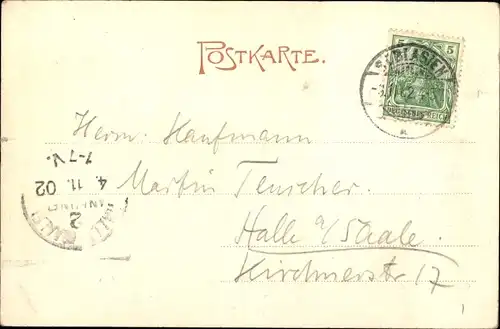 POSTKARTE.
5 5
ST. BLASIEN
DEUTSCHES REICH
Herrn Kaufmann
Martin Teuscher
Halle a/Saale.
Kirchnerstr 17
1-7 V.
4. 11. 02
2